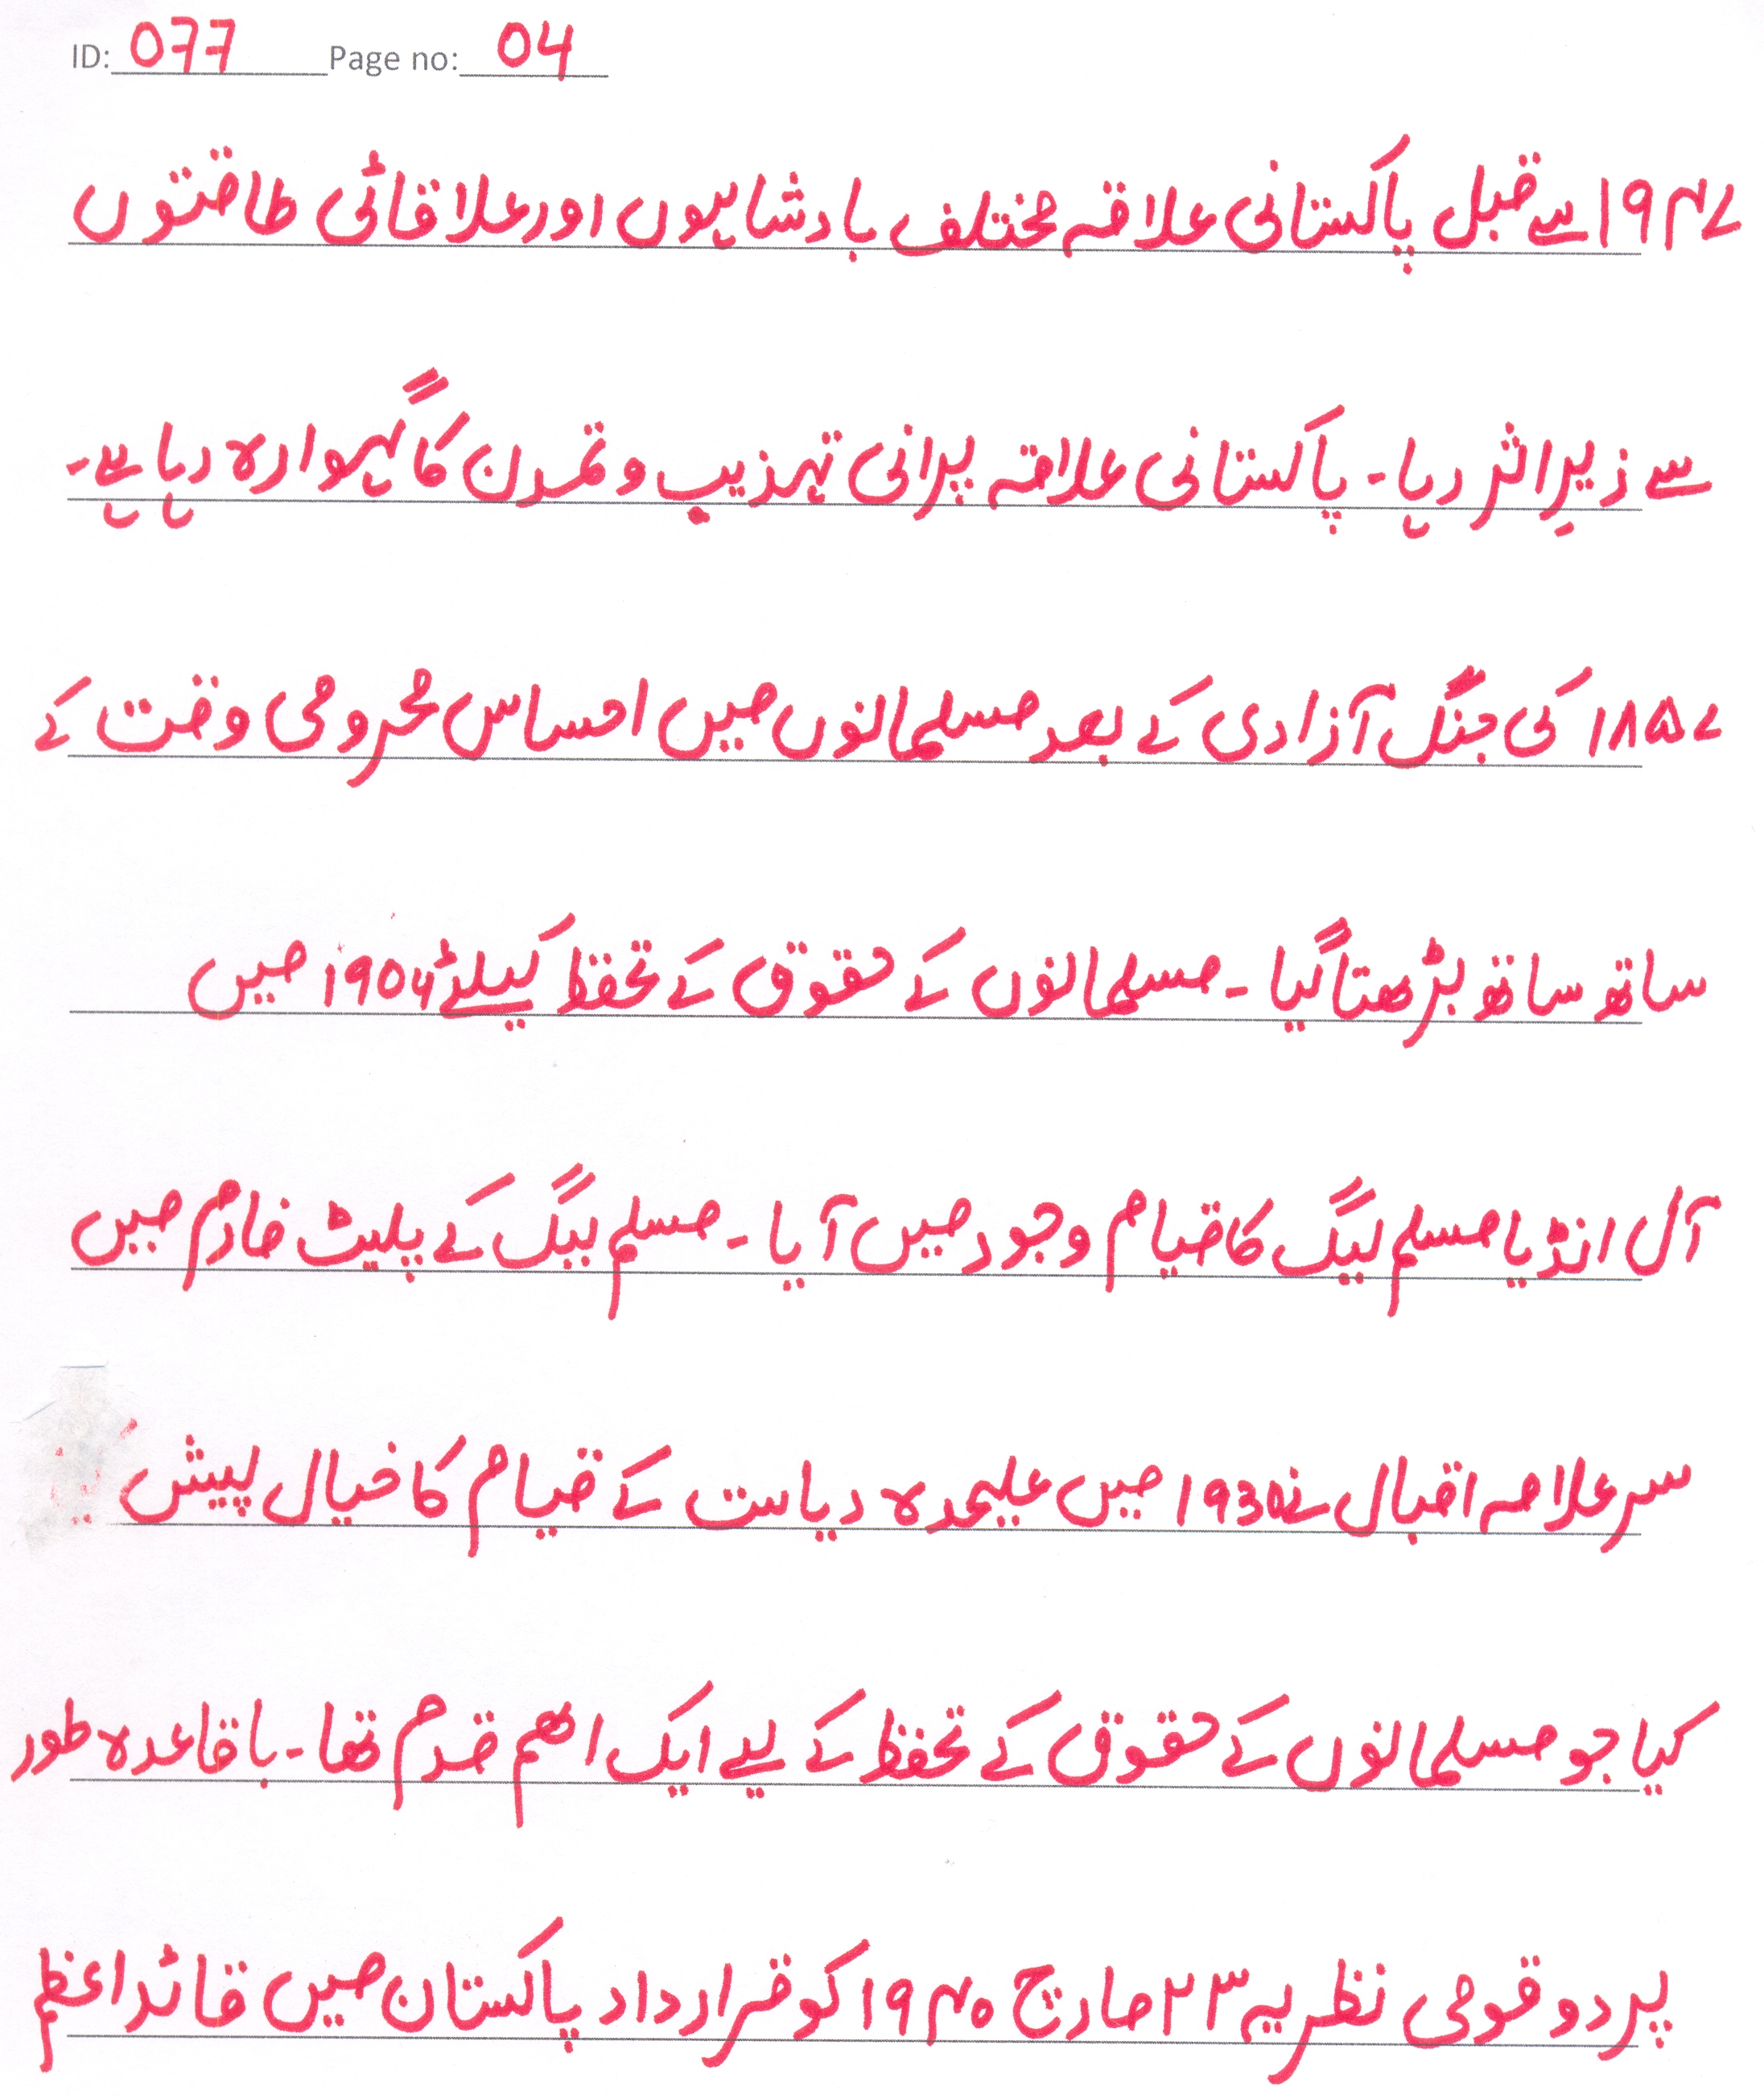 ID: 077 Page no: 04
۱۹۴۷ سے قبل پاکستانی علاقہ مختلف بادشاہوں اور علاقائی طاقتوں
سے زیرِ اثر رہا۔ پاکستانی علاقہ پرانی تہذیب و تمدن کا گہوارہ رہا ہے۔
۱۸۵۷ کی جنگ آزادی کے بعد مسلمانوں میں احساس محرومی وقت کے
ساتھ ساتھ بڑھتا گیا ۔ مسلمانوں کے حقوق کے تحفظ کیلئے ۱۹۰۶ میں
آل انڈیا مسلم لیگ کا قیام وجود میں آیا ۔ مسلم لیگ کے پلیٹ فارم میں
سر علامہ اقبال نے 1930 میں علیحدہ ریاست کے قیام کا خیال پیش
کیا جو مسلمانوں کے حقوق کے تحفظ کے لیے ایک اھم قدم تھا۔ باقاعدہ طور
پر دو قومی نظریہ ۲۳ مارچ ۱۹۴۰ کو قرارداد پاکستان میں قائداعظم